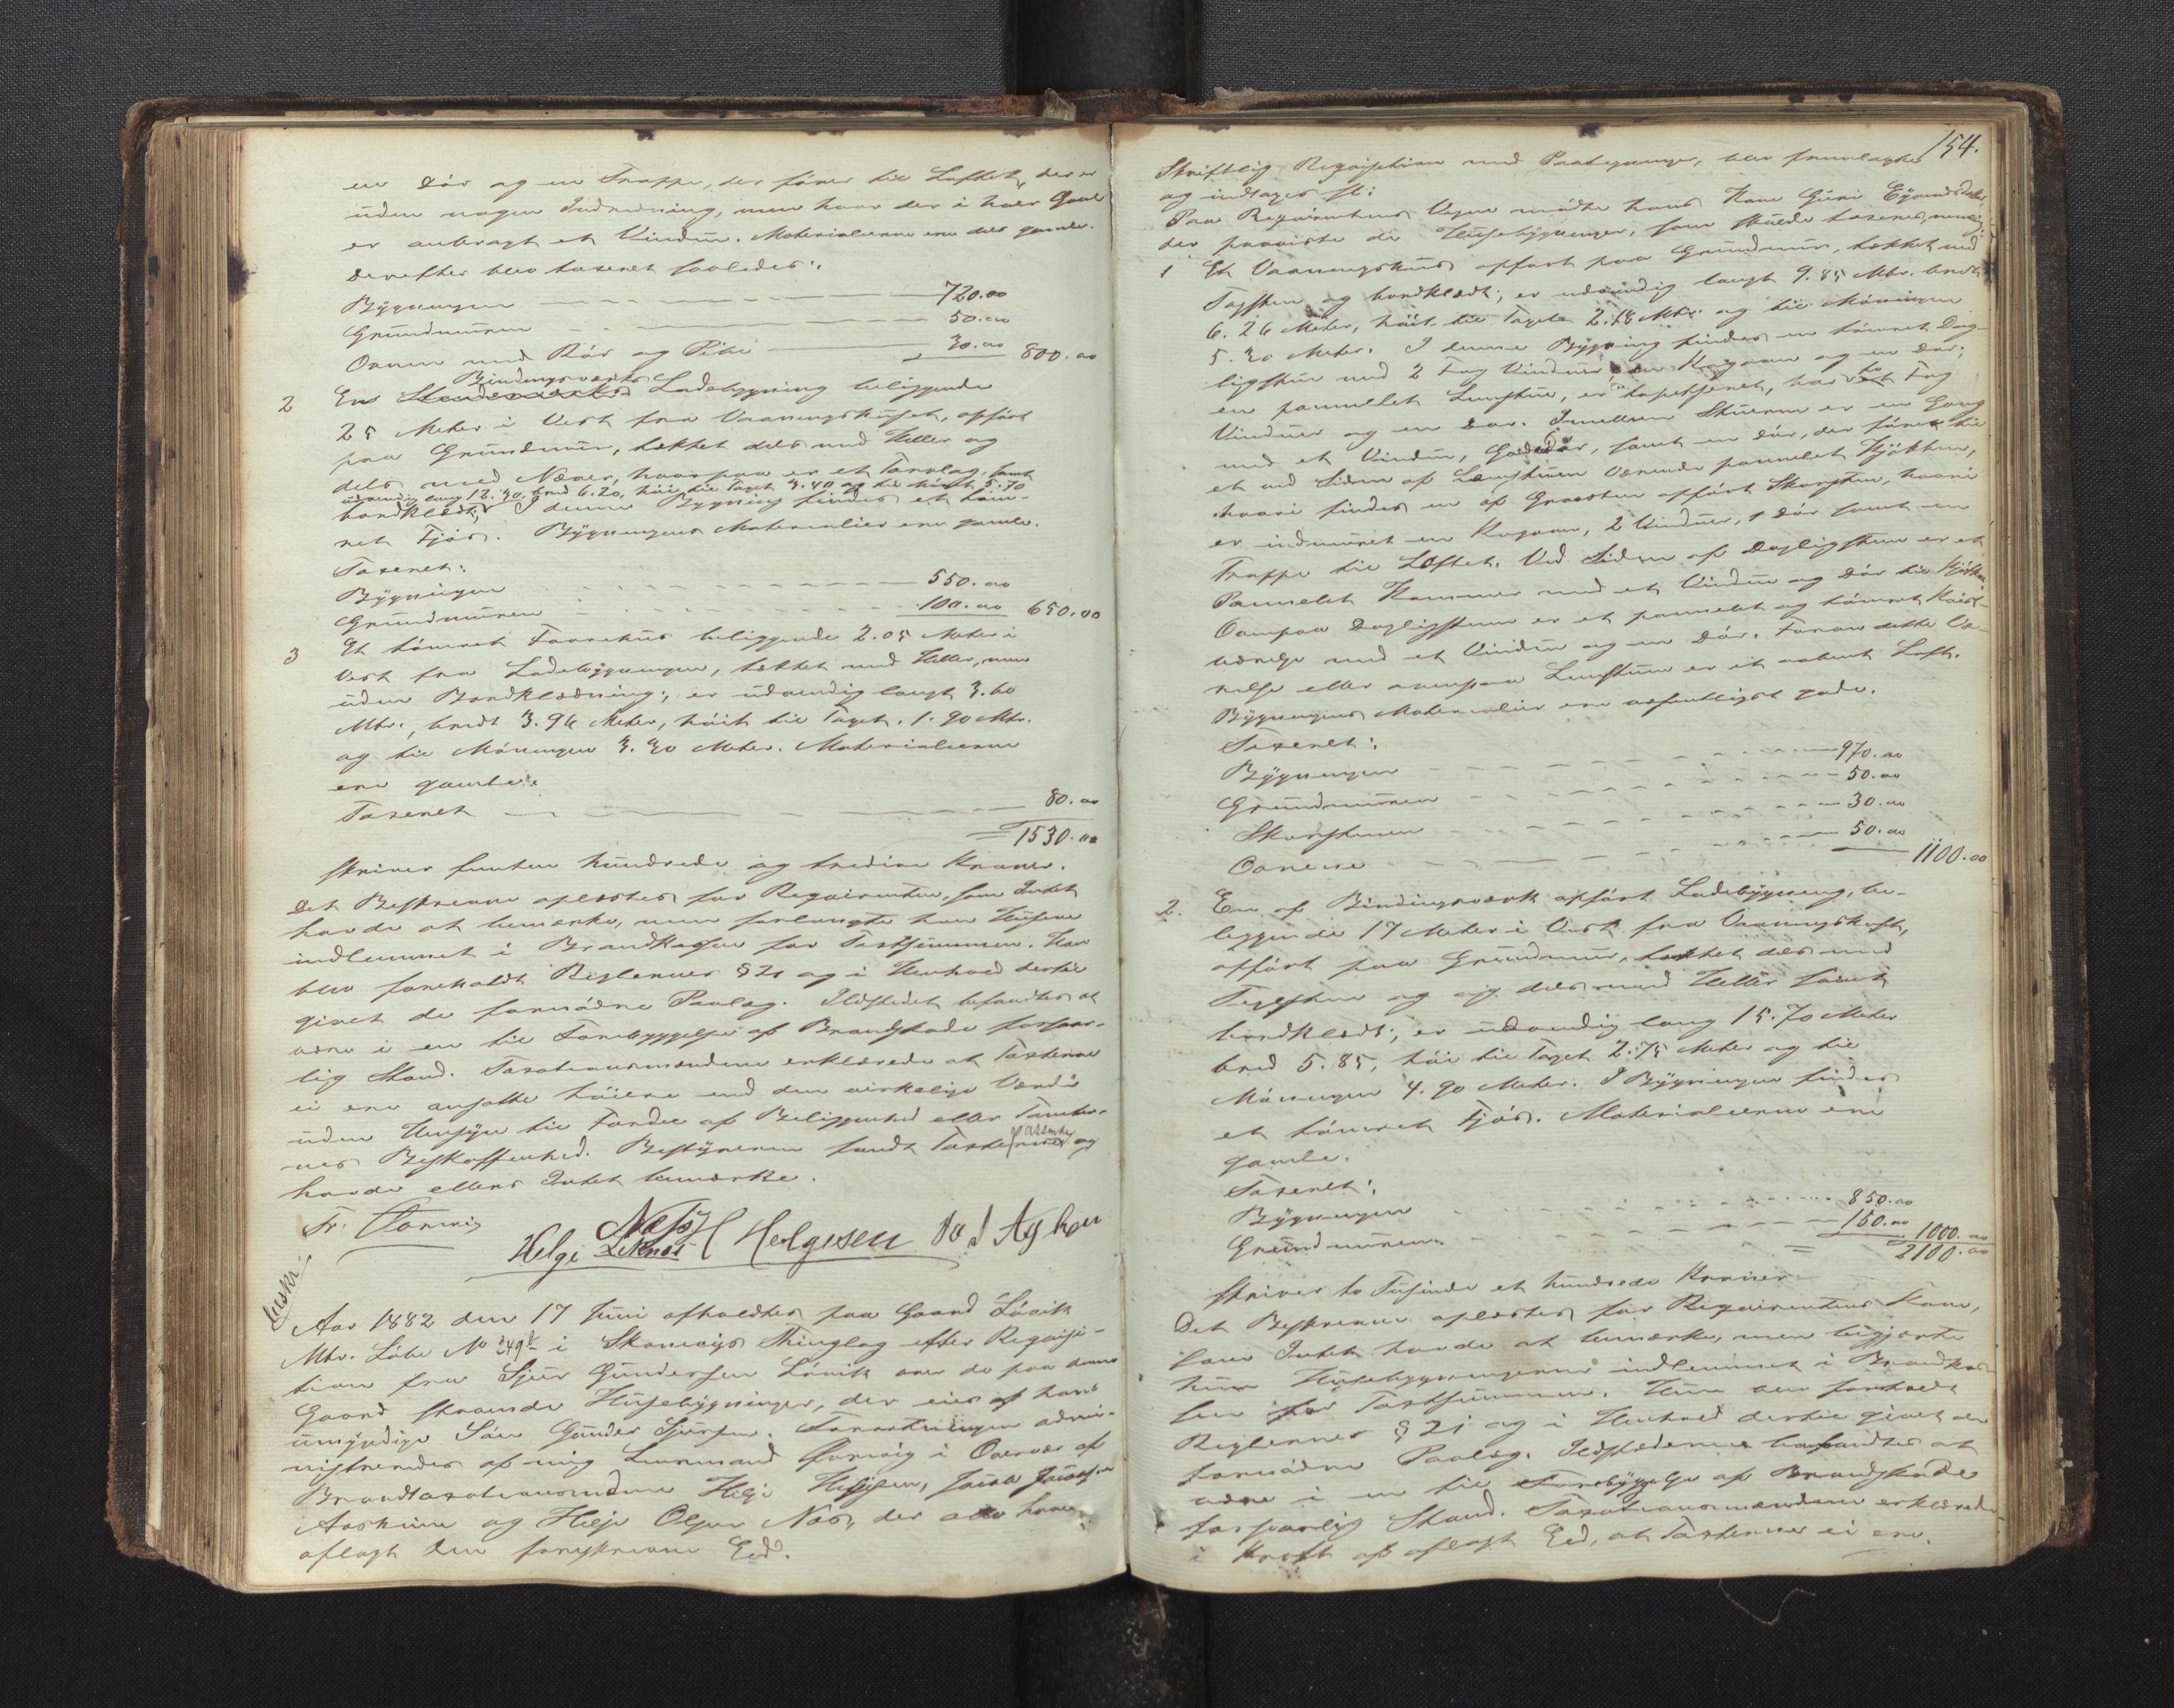 en Dör og en Trappe, der förer til Loftet, der er
uden nogen Indredning, men hvor der i hver Gavl
er anbragt et Vindue. Materialierne ere dels gamle.
Derefter blev taxeret saaledes:
Bygningen 720.00
Grundmuren 50.00
Ovnen med Rör og Pibe 30.00 800.00
Bindingsværks
2 En Ladebygning beliggende
25 Meter i Vest fra Vaaningshuset, opfört
paa Grundmur, tækket dels med Heller og
dels med Næver, hvorpaa er et Torvlag, samt
udvendig lang 12.90, bred 6.20, höi til Taget 3.40 og til Mönet 5.70
bordklædt; I denne Bygning findes et töm-
ret Fjös. Bygningens Materialier ere gamle.
Taxeret:
Bygningen 550.00
Grundmuren 100.00 650.00
3 Et tömret Torvehus beliggende 2.05 Meter i
Vest fra Ladebygningen, tækket med Heller, men
uden Bordklædning; er udvendig langt 3.60
Mtr., bredt 3.96 Meter, höit til Taget 1.90 Mtr.
og til Möningen 3.30 Meter. Materialierne
ere gamle.
Taxeret 80.00
= 1530.00
skriver femten hundrede og tredive Kroner.
Det Beskrevne oplæstes for Requirenten, som Intet
havde at bemærke, men forlangte han Husene
indlemmet i Brandkassen for Taxtsummen. Han
blev foreholdt Reglernes § 21 og i Henhold dertil
givet de fornödne Paalæg. Ildstedet befandtes at
være i en til Forebyggelse af Brandskade forsvar-
lig Stand. Taxationsmændene erklærede at Taxterne
ei ere ansatte höiere end den virkelige Værdi
uden Hensyn til Fordel af Beliggenhed eller Tomter-
nes Beskaffenhed. Bestyreren fandt Taxterne passende og
havde ellers Intet bemærke.
Helgi H Helgesen
Aar 1882 den 17 Juni afholdtes paa Gaard Lövik
Mtr. Löbe No 349 i Skonevigs Thinglag efter Requisi-
tion fra Sjur Gundersen Lövik over de paa denne
Gaard staaende Husebygninger, der eies af hans
umyndige Sön Gunder Sjursen. Forretningen admi-
nistreredes af mig Lensmand i Overvær af
Brandtaxationsmændene Helge Helgesen,
og Helje Olsen Næs, der alle have
aflagt den foreskrevne Eed.
154.
Skriftlig Requisition med Paategninger, blev fremlagt
og indtages sl:
Paa Requirentens Vegne mödte hans Kone Guri
der paaviste de Husebygninger, som skulde taxeres, nemlig:
1 Et Vaaningshus opfört paa Grundmur, tækket med
Tagsten og bordklædt; er udvendig langt 9.85 Mtr. bredt
6.26 Meter, höit til Taget 2.78 Mtr. og til Möningen
5.30 Meter. I denne Bygning findes en tömret Dag-
ligstue med 2 Fag Vinduer, en Kogeovn og en Dör;
en pannelet Lemstue, er tapetseret, har to Fag
Vinduer og en Dör. Imellem Stuerne er en Gang
med et Vindue, Gadedör, samt en Dör, der förer til
et ved Siden af Lemstuen værende pannelet Kjökken,
hvori findes en af Graasten opfört Skorsten, hvori
er indmuret en Kogeovn, 2 Vinduer, 1 Dör samt en
Trappe til Loftet. Ved Siden af Dagligstuen er et
Pannelet Kammer med et Vindue og Dör til Kjökken
Ovenpaa Dagligstuen er et pannelet og tömret Kvist-
værelse med et Vindue og en Dör. Foran dette Væ-
relse eller ovenpaa Lemstuen er et aabent Loft.
Bygningens Materialier ere væsentligst gode.
Taxeret:
Bygningen 970.00
Grundmuren 50.00
Skorstenen 30.00
Ovnene 50.00 1100.00
2. En af Bindingsværk opfört Ladebygning, be-
liggende 17 Meter i Vest fra Vaaningshuset,
opfört paa Grundmur, tækket dels med
Teglsten og dels med Heller samt
bordklædt; er udvendig lang 15.70 Meter
bred 5.85, höi til Taget 2.75 Meter og til
Möningen 4.90 Meter. I Bygningen findes
et tömret Fjös. Materialierne ere
gamle.
Taxeret:
Bygningen 850.00
Grundmuren 150.00 1000.00
= 2100.00
skriver to Tusinde et hundrede Kroner.
Det Beskrevne oplæstes for Requirentens Kone,
som Intet havde at bemærke, men begjærte
hun Husebygningerne indlemmet i Brandkas-
sen for Taxtsummen. Hun blev foreholdt
Reglernes § 21 og i Henhold dertil givet de
fornödne Paalæg. Ildstederne befandtes at
være i en til Forebyggelse af Brandskade
forsvarlig Stand. Taxationsmændene erklærede
i Kraft af aflagt Eed, at Taxterne ei ere